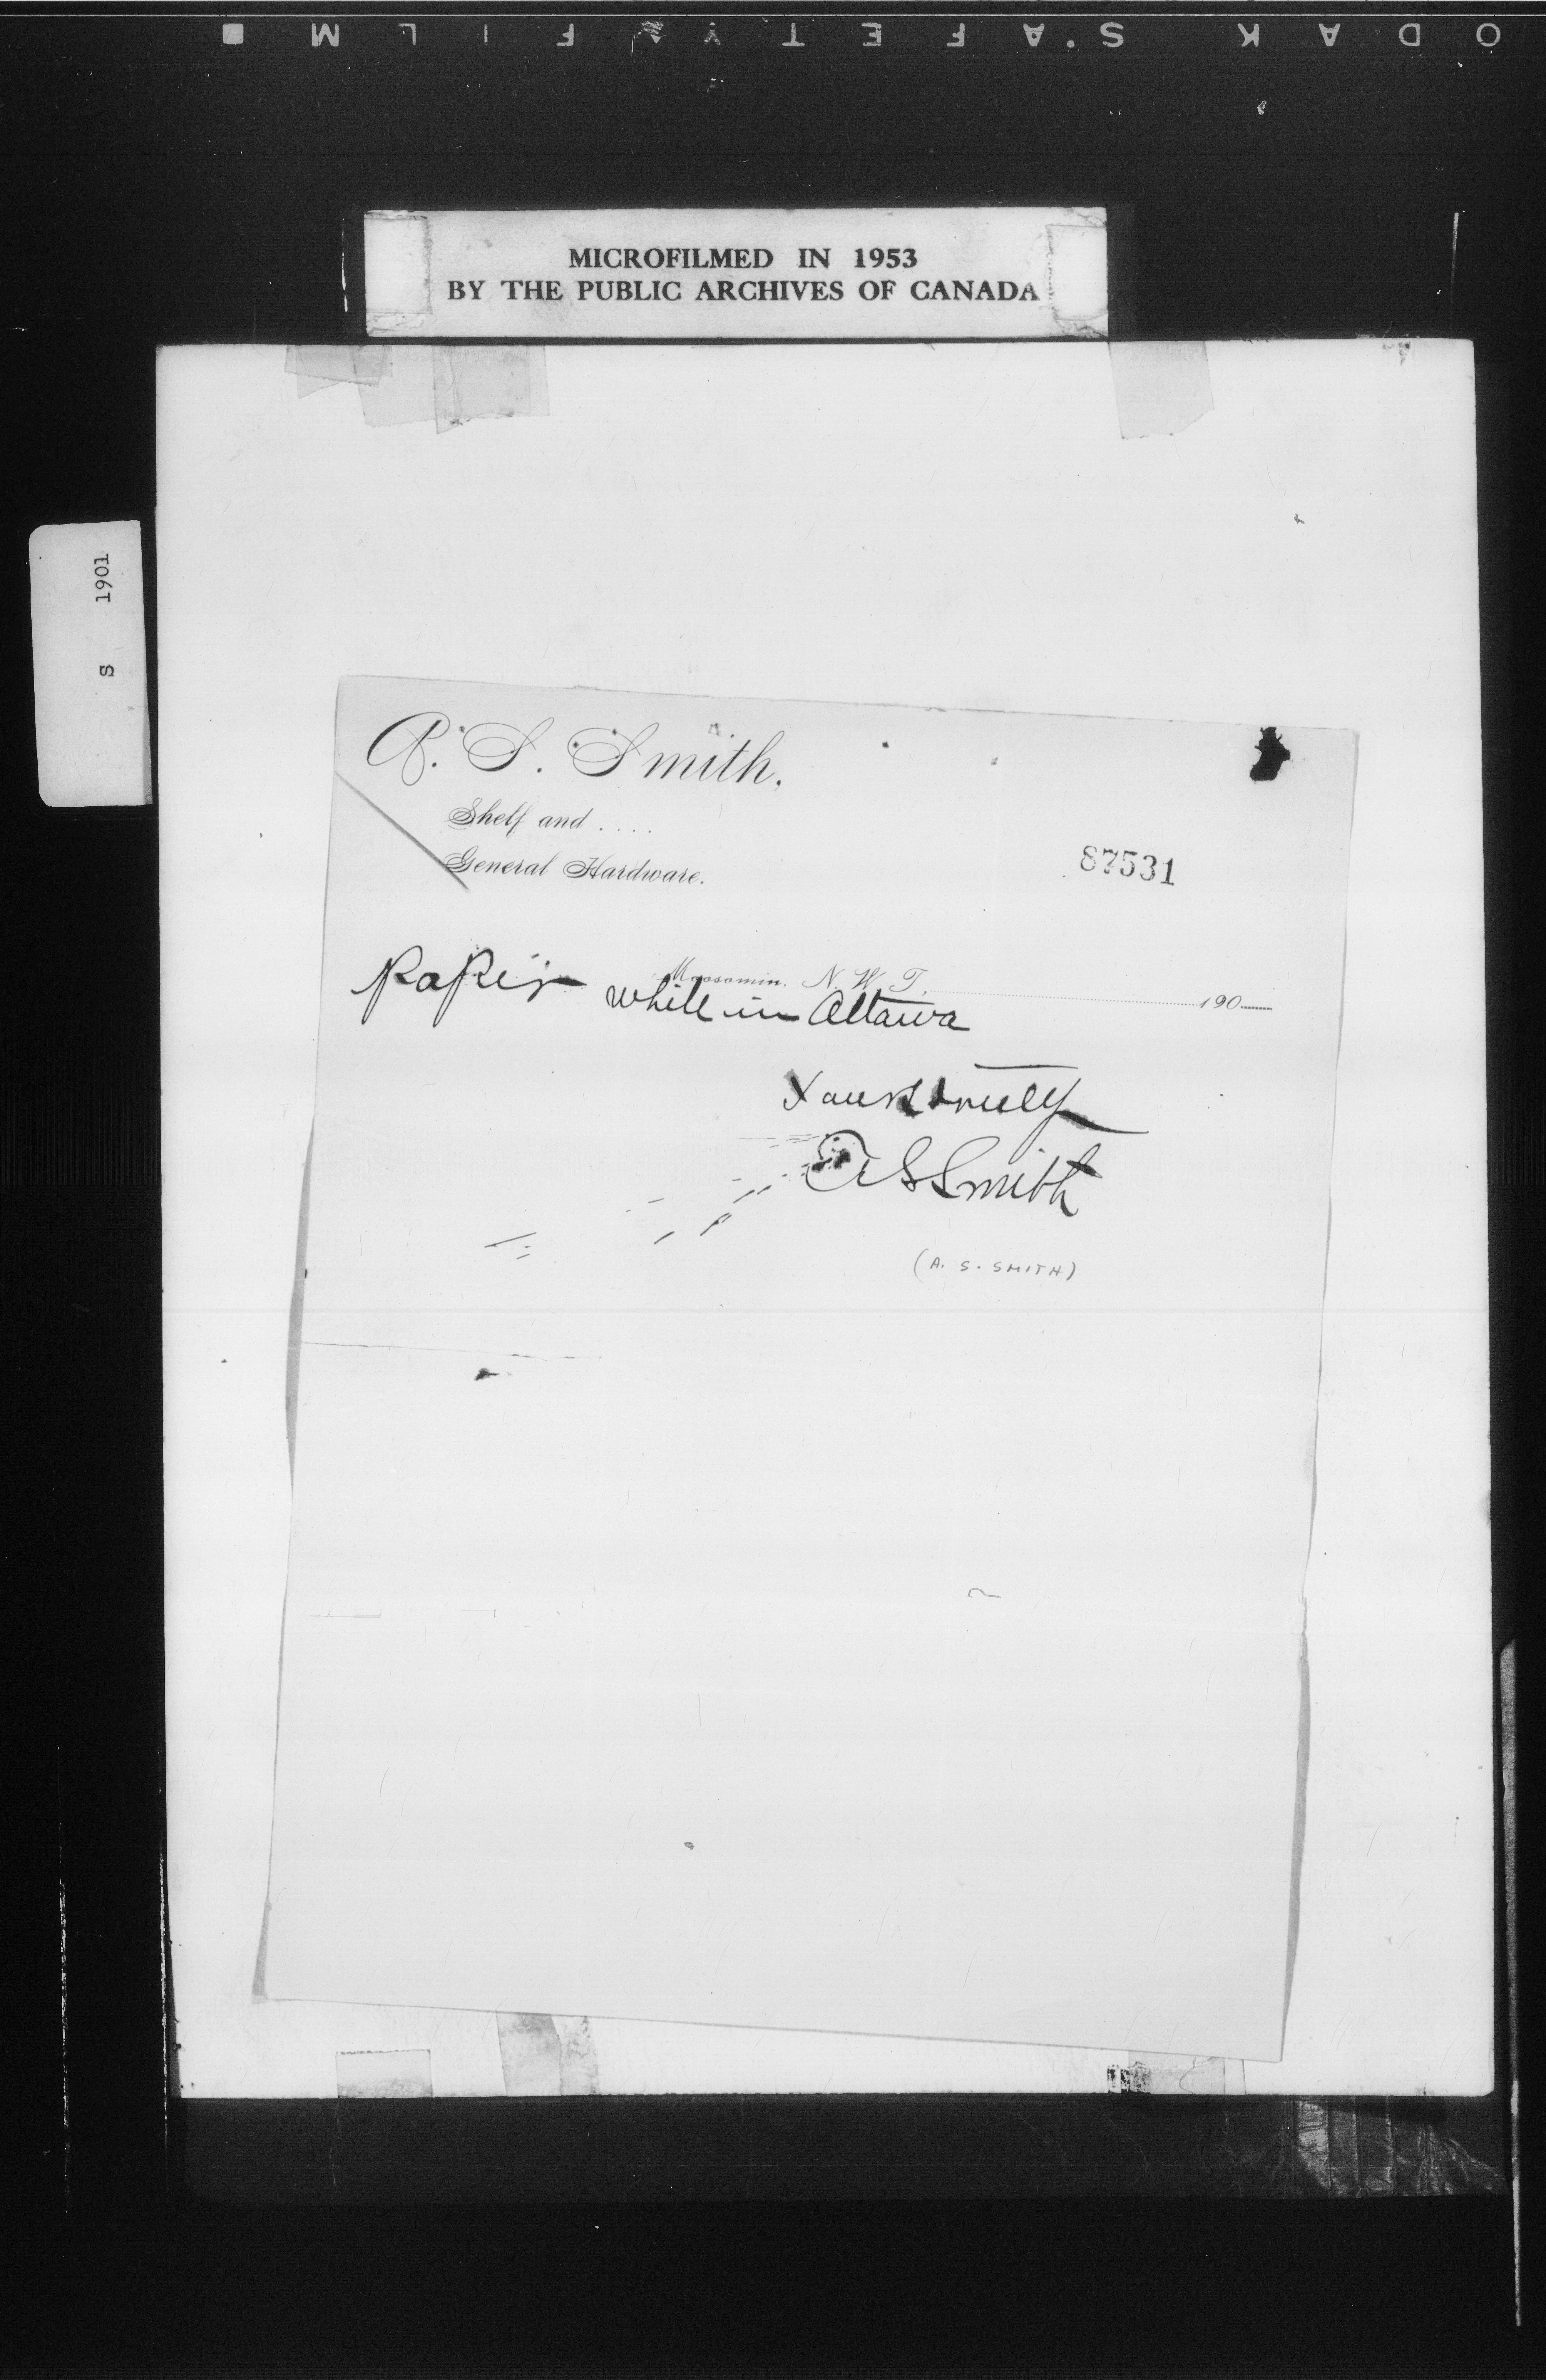 KODAK SAFETY FILM
MICROFILMED IN 1953
BY THE PUBLIC ARCHIVES OF CANADA
S 1901
A. S. Smith.
Shelf and ....
General Hardware.
87531
Moosomin, N. W. T., 190
paper while in Ottawa
Yours truly
A S Smith
(A. S. SMITH)